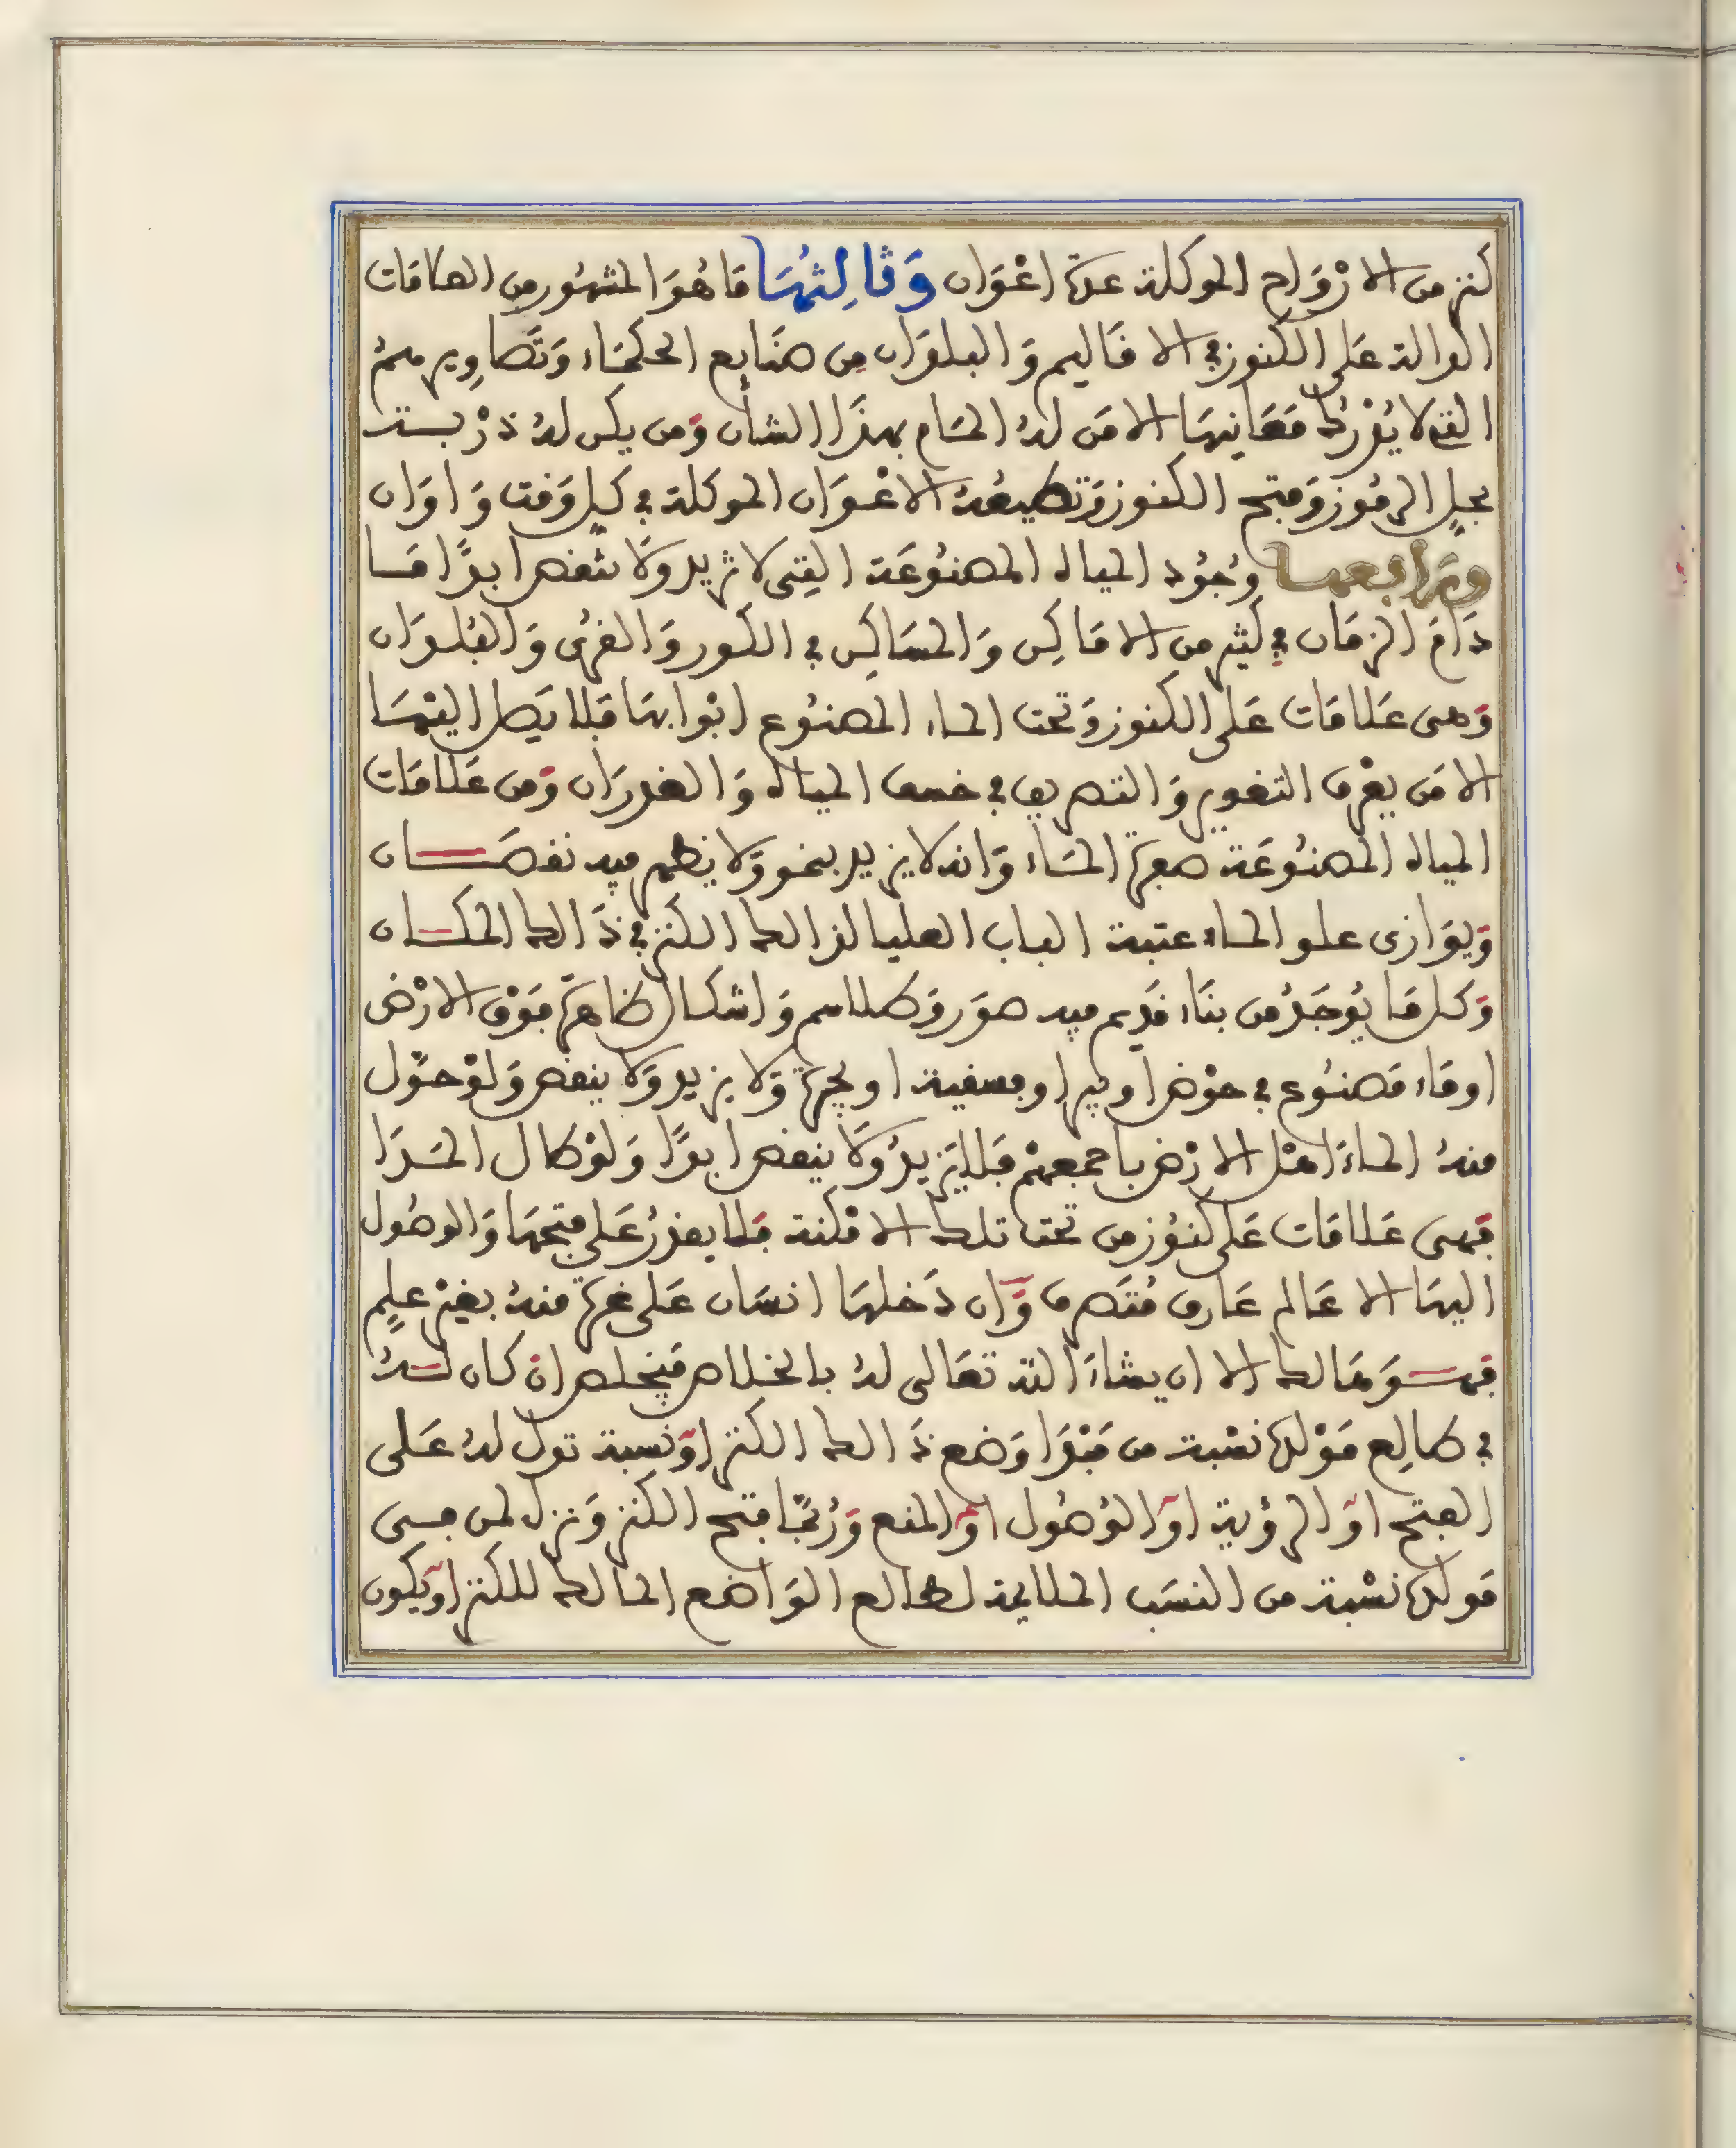 كنز من الارْوَاح الموكلة عدّة اعْوَان وَثَالِثُهَا مَا هُوَ المشهُور من العلامَات
الدالة عَلى الكنوز في الاقَاليم وَالبلدَان مِن صنَايع الحكمَاء وَتَصَاوِيرهم
التي لا يُدْرك مَعَانيهَا الا مَن لهُ المَام بهذَا الشأن وَمن يكن لهُ دُرْبـــة
بحلِ الرمُوز وَفتح الكنوز وَتطيعُهُ الاعْـوَان الموكلة في كلِ وَقت وَاوَان
ورَابعهـا وُجُود المياه المصنُوعَة التِي لا تزيد وَلا تنْقص ابدًا مَـا
دَامَ الزمَان في كثير من الامَاكِن وَالمسَاكِن في الكور وَالقرى وَالبُلـدَان
وَهى عَلامَات عَلى الكنوز وَتحت الماء المصنُوع ابْوابهَا فَلا يَصل اليْهَـا
الا مَن يعْرف التغوير وَالتصريف في خسف المياه وَالغدرَان وَمن عَلامَات
المياه المصنُوعَة صفرة المَاء وَانه لا يزيد بنمو وَلا يظهر فيه نقصَــــان
وَيوَازى علو الماء عتبة الباب العليا لذالك الكنز في ذَالك المكــان
وَكل مَا يُوجَدُ من بنَاء قَديم فيه صوَر وَطلاسم وَاشكـال ظاهرَة فَوْق الارْض
او مَاء مَصنُوع في حوْض او بير او فسقية او بحرة وَلا يزيد وَلا ينقص وَلوْ حوّل
منهُ المـاءَ اهْل الارْض باجمعهمْ فَلا يَزيدُ وَلا ينقص ابدًا وَلوْ طال المَـدَا
فَهى عَلامَات عَلى كنُوز من تحت تلك الامْكنة فَلا يقدرُ عَلى فتحهَا وَالوصُول
اليهَا الا عَالم عَارف مُتَصرف وَان دَخلهَا انسَان عَلى غرة منهُ بغيْر علمٍ
فهـــوَ هَالك الا ان يشاءَ الله تعَالى لهُ بالخلاص فَيخلص ان كان لــهُ
في طالِع مَوْلده نسْبة من مَبْدَا وَضع ذَالك الكنز اوْ نسبة تدل لهُ عَـلى
الفتح اوْ الرؤية اوْ الوُصُول اوْ المنع وَرُبمَّا فتح الكنز وَنزل لمن في
مَولده نسْبة من النسَب الملايمة لطالع الوَاضع المالك للكنز اوْ يكون